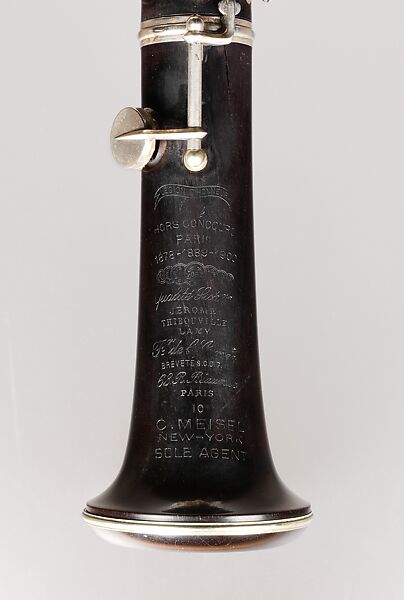 LEGION D'HONNEUR
HORS CONCOURS
PARIS
1878-1889-1900
Qualité
JEROME
THIBOUVILLE
LAMY
BREVETES.G.D.G.
68 R. Réaumur
PARIS
10
C. MEISEL
NEW-YORK
SOLE AGENT